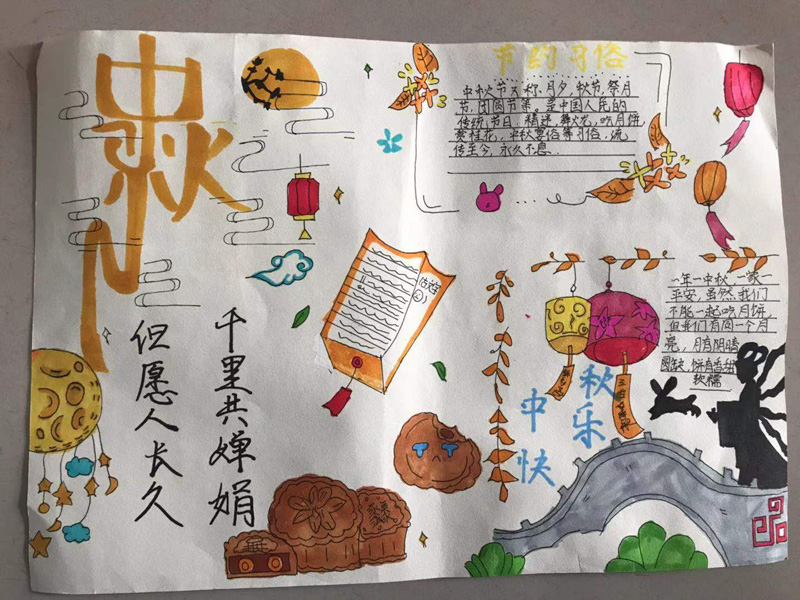 中秋
但愿人长久
千里共婵娟
节的习俗
中秋节又称,月夕,秋节,祭月
节,团圆节等。是中国人民的
传统节日,猜迷,舞火龙,吃月饼,
赏桂花,中秋宴俗等习俗,流
传至今,永久不息。
一年一中秋,一家一
平安,虽然,我们
不能一起吃月饼,
但我们有同一个月
亮,月有阴晴
圆缺,饼有香甜
软糯
中秋
快乐